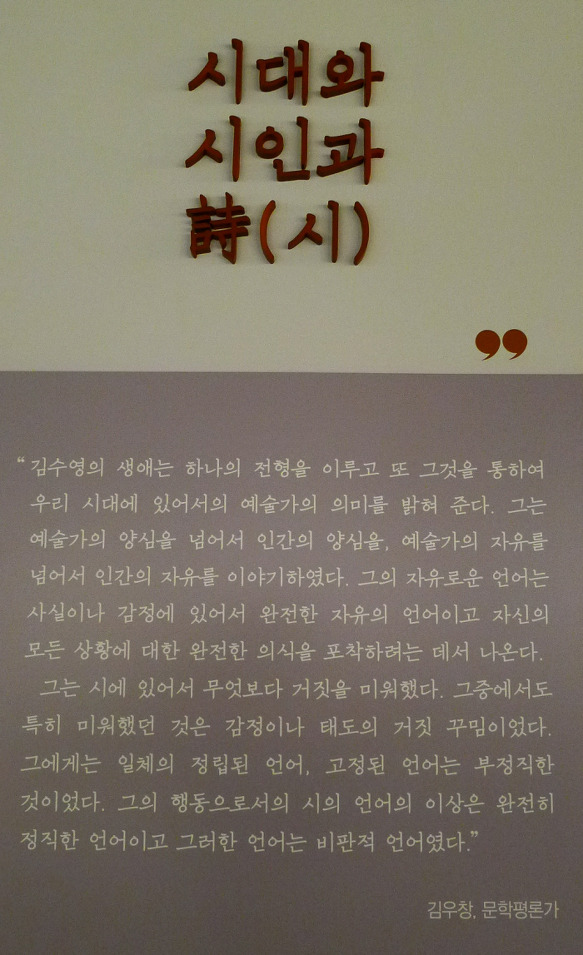 시대와
시인과
詩(시)
”
“김수영의 생애는 하나의 전형을 이루고 또 그것을 통하여
우리 시대에 있어서의 예술가의 의미를 밝혀 준다. 그는
예술가의 양심을 넘어서 인간의 양심을, 예술가의 자유를
넘어서 인간의 자유를 이야기하였다. 그의 자유로운 언어는
사실이나 감정에 있어서 완전한 자유의 언어이고 자신의
모든 상황에 대한 완전한 의식을 포착하려는 데서 나온다.
그는 시에 있어서 무엇보다 거짓을 미워했다. 그중에서도
특히 미워했던 것은 감정이나 태도의 거짓 꾸밈이었다.
그에게는 일체의 정립된 언어, 고정된 언어는 부정직한
것이었다. 그의 행동으로서의 시의 언어의 이상은 완전히
정직한 언어이고 그러한 언어는 비판적 언어였다.”
김우창, 문학평론가